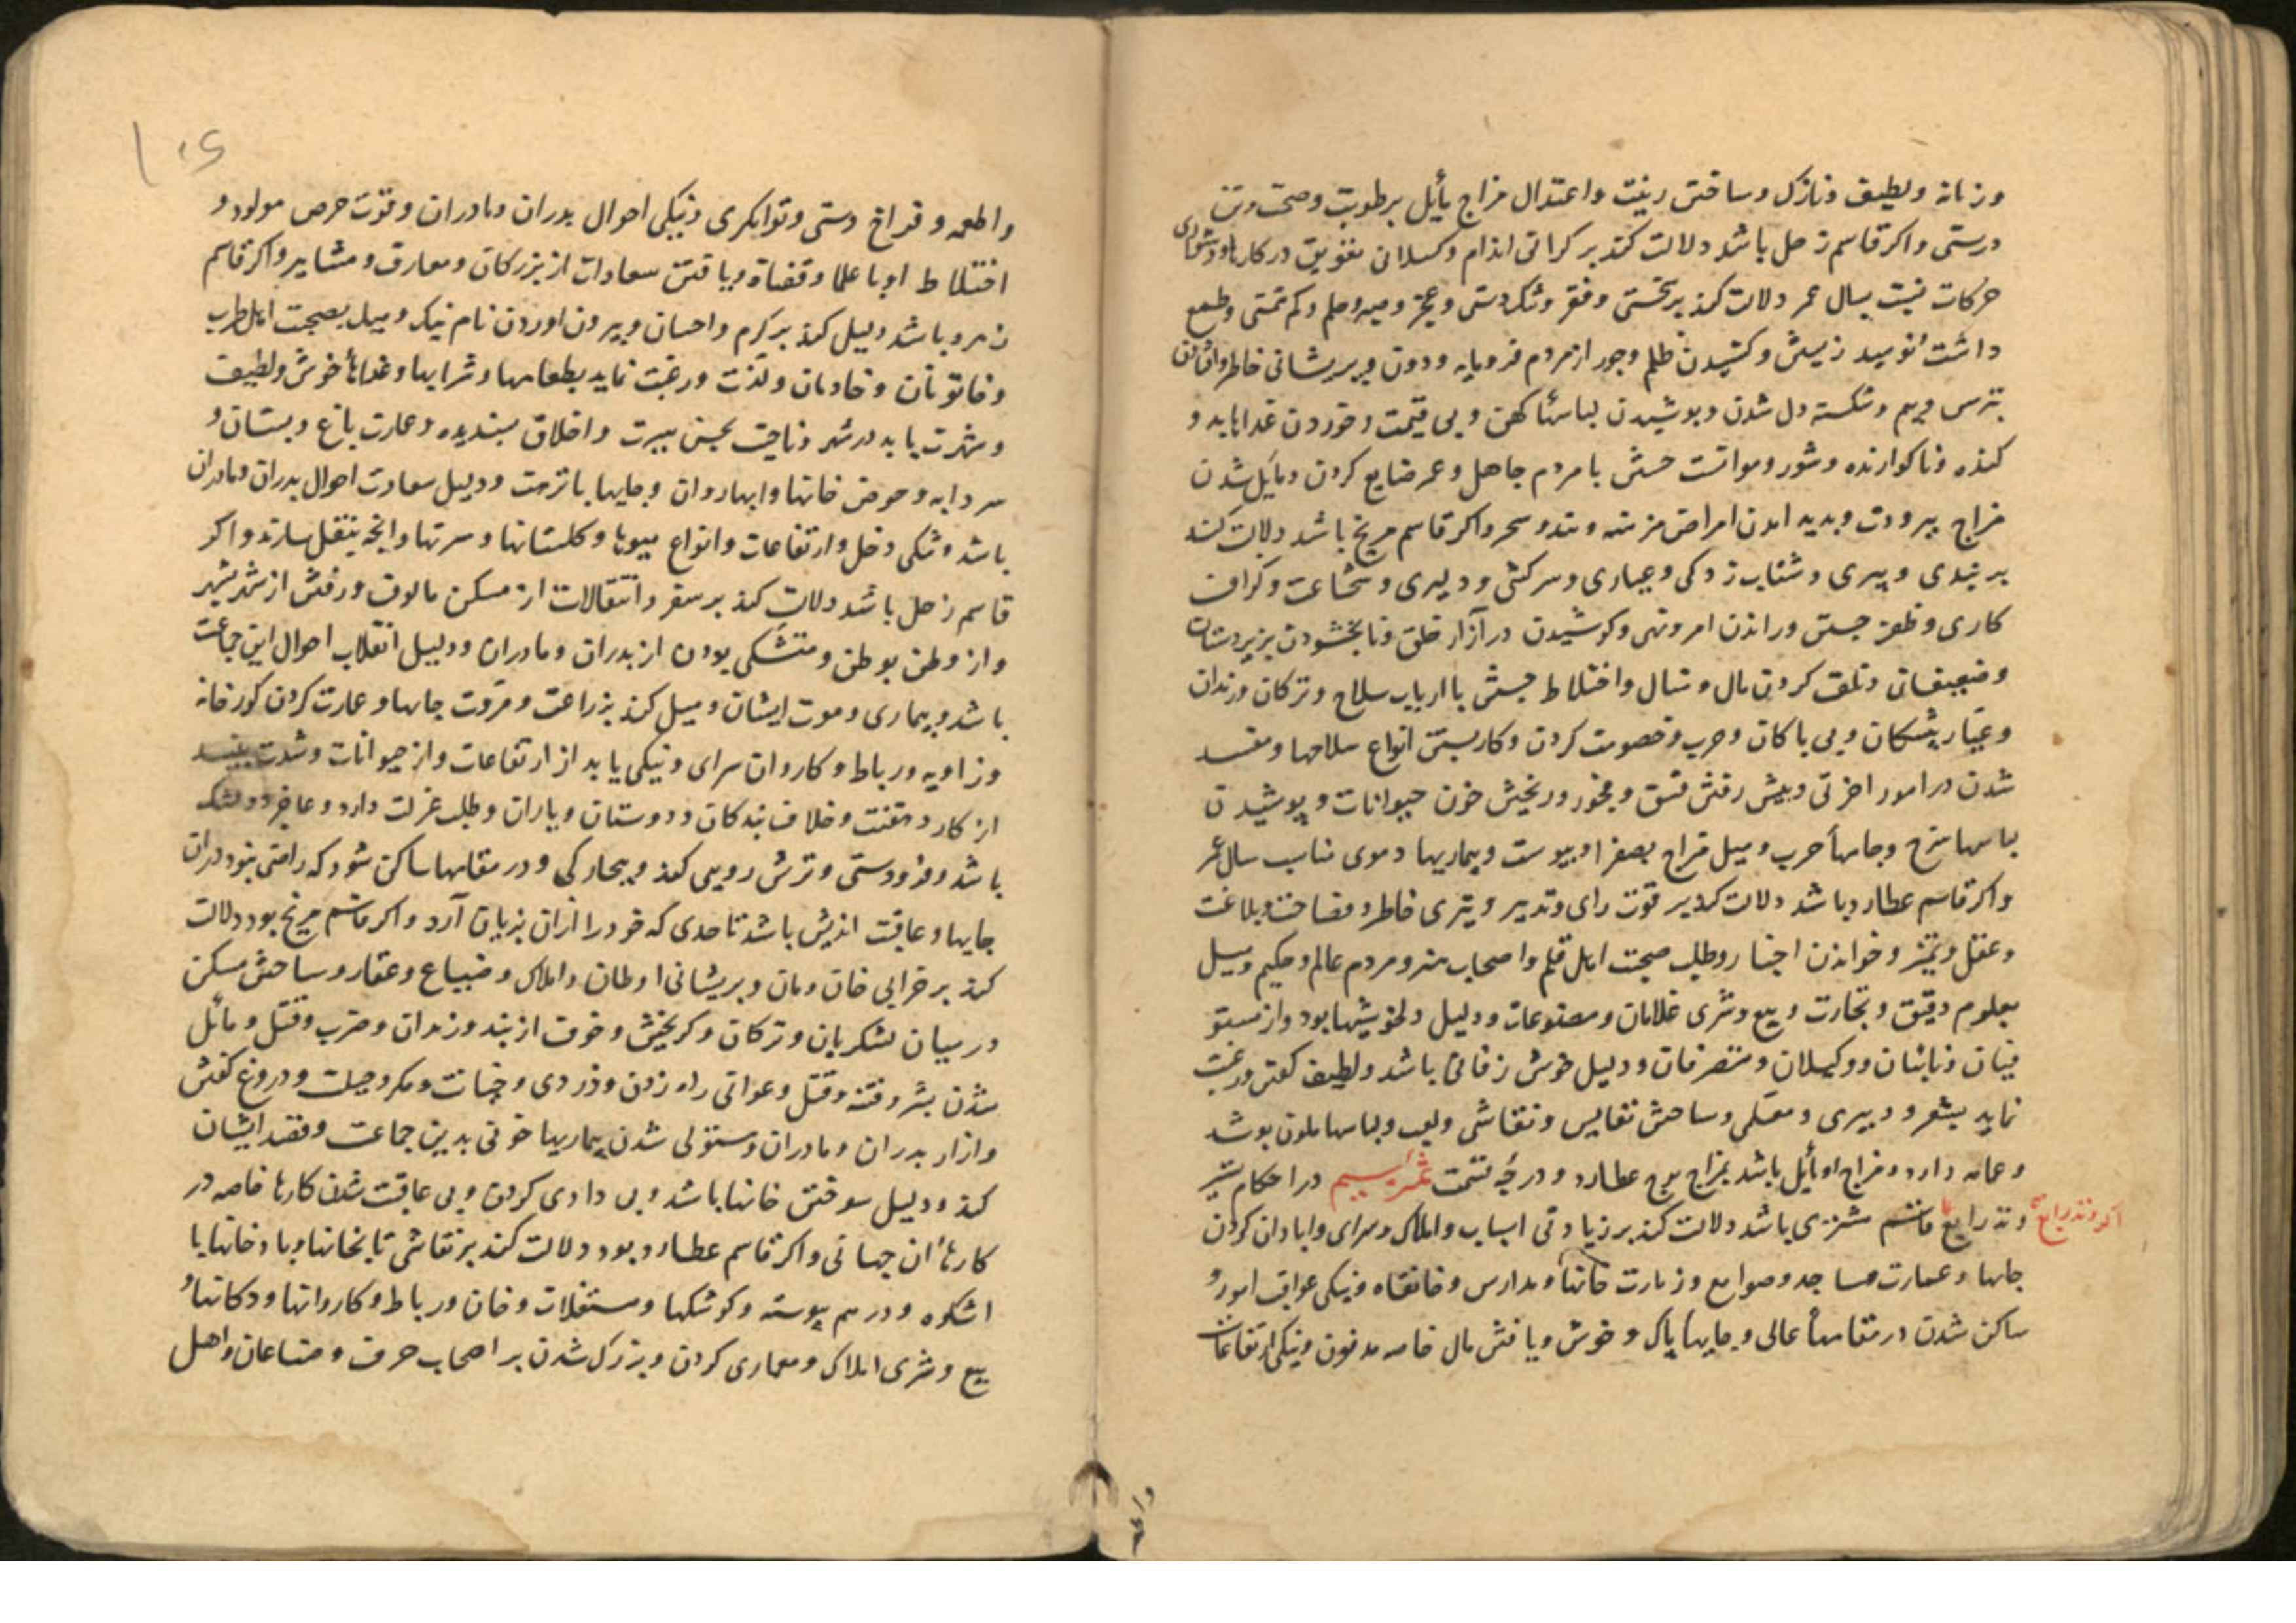 وزنانه ولطیف ونازک وساختن زینت واعتدال مزاج مأیل برطوبت وصحت وتن
درستی واکر قاسم زحل باشد دلالت کند بر کرانی اندام وکسلان تعویق در کارها ودشواری
حرکات نسبت بسال عمر دلالت کند برنحسی وفقر وتنکدستی وعجز وصبر وحلم وکم تمتی وطمع
داشت نومید زیستن وکشیدن ظلم وجور از مردم فرومایه ودون وپریشانی خاطر
بترس وبیم وشکسته دل شدن وبوشیدن لباسهٔا کهن وبی قیمت وخوردن غذاها بد و
کنده وناکوارنده وشور وموانست جستن با مردم جاهل وعمر ضایع کردن ومایل شدن
مزاج ببرودت وپدید امدن امراض مزمنه واکر قاسم مریخ باشد دلالت کند
بر تندی وتیزی وشتاب زدکی وعیاری وسرکشی ودلیری وشجاعت وکزاف
کاری وظفر جستن وراندن امر ونهی وکوشیدن در آزار خلق ونابخشودن بزیردستان
وضعیفان وتلف کردن مال ومنال واختلاط جستن با ارباب سلاح وترکان ورندان
وعیار پیشکان وبی باکان وحرب وخصومت کردن وکاربستن انواع سلاحها ومفسد
شدن در امور اخرتی وپیش رفتن فسق وفجور وریختن خون حیوانات وپوشیدن
لباسها سرخ وجامهأ حرب ومیل مزاج بصفرا ویبوست وبیماریها دموی مناسب سال عمر
واکر قاسم عطارد باشد دلالت کند بر قوت رای وتدبیر وتیزی خاطر وفصاحت وبلاغت
وعقل وتمیز وخواندن اخبار وطلب صحبت اهل قلم واصحاب هنر ومردم عالم وحکیم ومیل
بعلوم دقیق وتجارت وبیع وشری غلامان ومصنوعات ودلیل دلخوشیها بود واز مستو
فیان ونایبان ووکیلان ومتصرفان ودلیل خوش زفانی باشد ولطیف کفتن ورغبت
نماید بشعر ودبیری ومعلمی وساختن نفایس ونقاشی ولعب ولباسها ملون پوشد
وعمامه دارد ومزاج او مأیل باشد بمزاج برج عطارد ودرجهٔ قسمت در احکام تسییر
اکر وتد رابع وتد رابع قاسم مشتری باشد دلالت کند بر زیادتی اسباب واملاک وسرای وابادان کردن
جایها وعمارت مساجد وصوامع وزیارت خانها ومدارس وخانقاه ونیکی عواقب امور و
ساکن شدن در مقامهأ عالی وجایهأ پاک وخوش ویافتن مال خاصه مدفون ونیکی ارتفاعات
واطعمه
۱۰۶
واطعمه وفراخ دستی وتوانکری ونیکی احوال پدران ومادران وقوت حرص مولود و
اختلاط او با علما وقضاة ویافتن سعادات از بزرکان ومعارف ومشاهیر واکر قاسم
زهره باشد دلیل کند بر کرم واحسان وبیرون اوردن نام نیک ومیل بصحبت اهل طرب
وخاتونان وخادمان ولذت ورغبت نماید بطعامها وشرابها وغذاهأ خوش ولطیف
وشهرت یابد در شهر وناحیت بحسن سیرت واخلاق پسندیده وعمارت باغ وبستان و
سردابه وحوض خانها وابها روان وجایها با نزهت ودلیل سعادت احوال پدران ومادران
باشد ونیکی دخل وارتفاعات وانواع میوها وکلستانها وانچه بنقل سازند واکر
قاسم زحل باشد دلالت کند بر سفر وانتقالات از مسکن مالوف ورفتن از شهر بشهر
واز وطن بوطن ومتشکی بودن از پدران ومادران ودلیل انقلاب احوال این جماعت
باشد وبیماری وموت ایشان ومیل کند بزراعت ومرمت جایها وعمارت کردن کورخانه
وزاویه ورباط وکاروان سرای ونیکی یابد از ارتفاعات واز حیوانات وشدت بیند
از کار وخلاف بندکان ودوستان ویاران وطلب عزلت دارد وعاجز
باشد وفرودستی وترش رویی کند وبیچارکی ودر مقامها ساکن شود که راضی نبود دران
جایها وعاقبت اندیش باشد تا حدی که خود را ازان بزیان آرد واکر قاسم مریخ بود دلالت
کند بر خرابی خان ومان وپریشانی اوطان واملاک وضیاع وعقار وساختن مسکن
در میان لشکریان وترکان وکریختن وخوف از بند وزندان وضرب وقتل ومأیل
شدن بشر وفتنه وقتل وعوانی راه زدن ودزدی وخیانت ومکر وحیلت ودروغ کفتن
وازار پدران ومادران ومستولی شدن بیماریها خونی بدین جماعت وفقد ایشان
کند ودلیل سوختن خانها باشد وبی دادی کردن وبی عاقبت شدن کارها خاصه در
کارهأ ان جهانی واکر قاسم عطارد بود دلالت کند بر نقاشی تابخانها وبادخانها با
اشکوه ودر هم پیوسته وکوشکها ومستغلات وخان ورباط وکاروانها ودکانها و
بیع وشری املاک ومعماری کردن وبزرک شدن بر اصحاب حرف وصناعات واهل